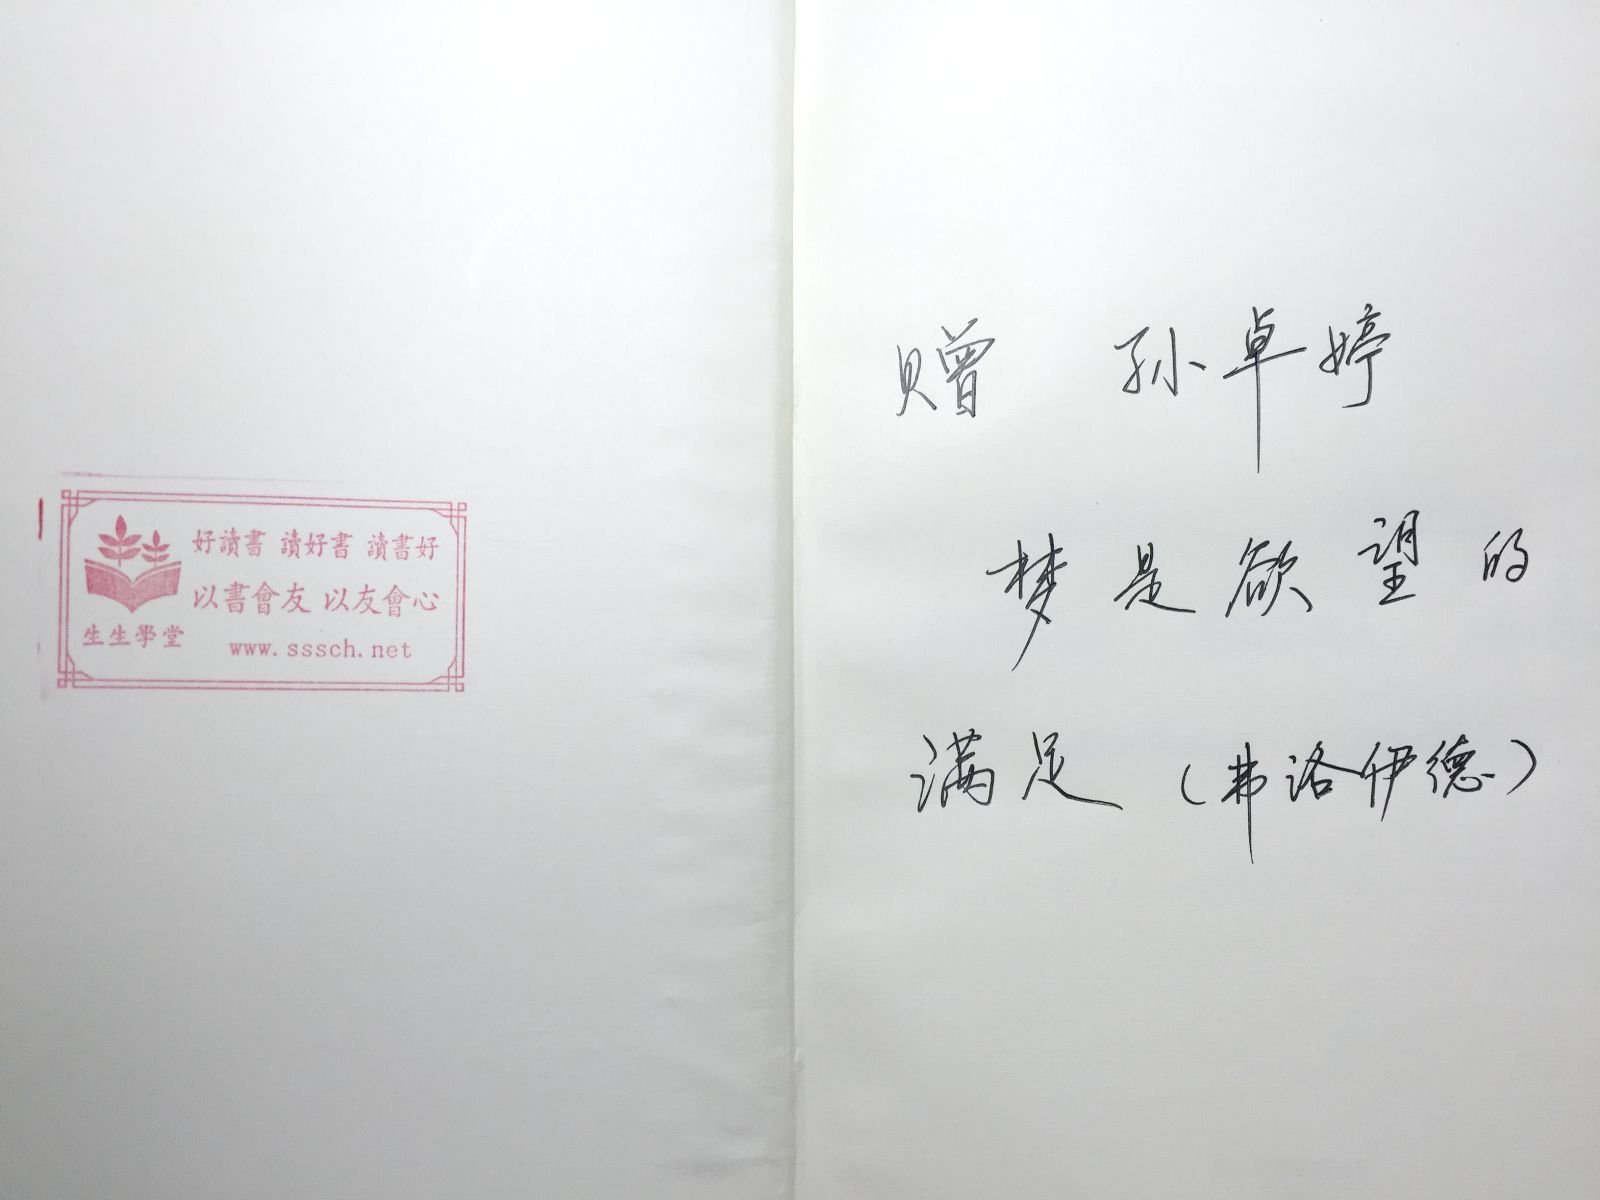 好讀書 讀好書 讀書好
以書會友 以友會心
生生學堂
www.sssch.net
赠 孙卓婷
梦是欲望的
满足（弗洛伊德）